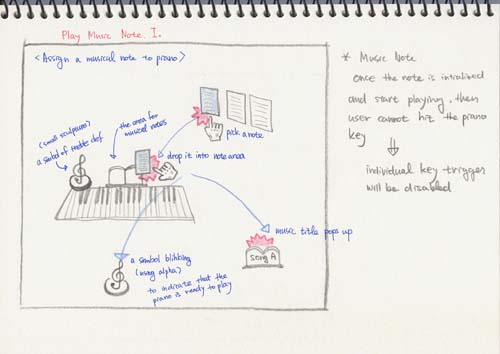 Play Music Note. I.
<Assign a musical note to piano>
pick a note
the area for
musical notes
(small sculpture)
a symbol of treble clef
drop it into note area
music title pops up
Song A
a symbol blinking
(using alpha)
to indicate that the
piano is ready to play
* Music Note
once the note is initialized
and start playing, then
user cannot hit the piano
key
individual key trygger
will be disabled